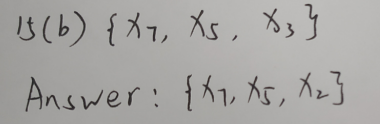 15(b) {x₇, x₅, x₃}
Answer: {x₇, x₅, x₂}